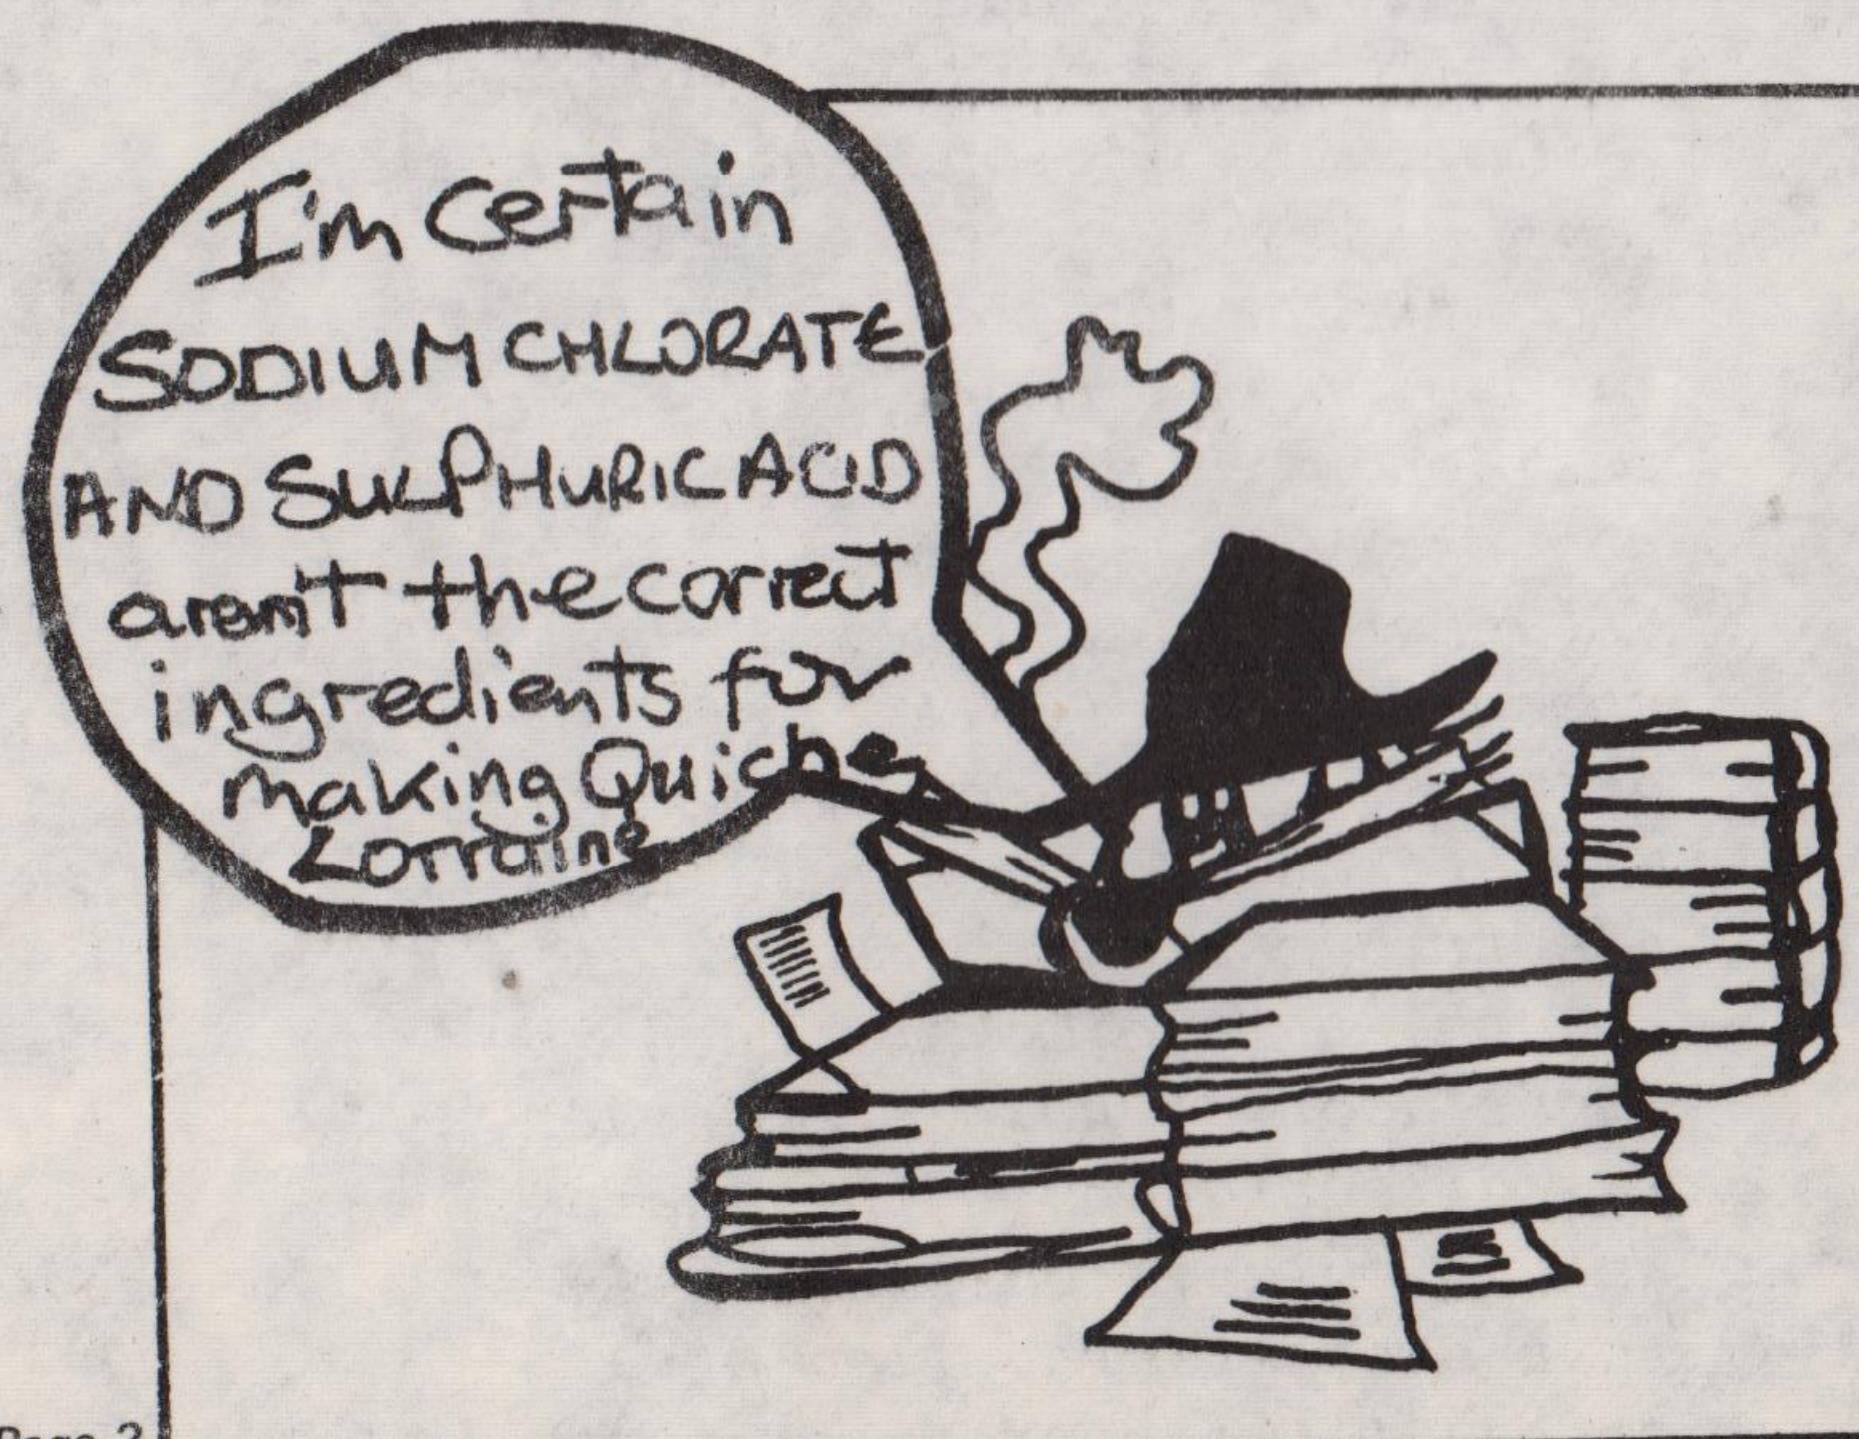 I'm Certain
SODIUM CHLORATE
AND SULPHURIC ACID
aren't the correct
ingredients for
making Quiche
Lorraine
Page 2